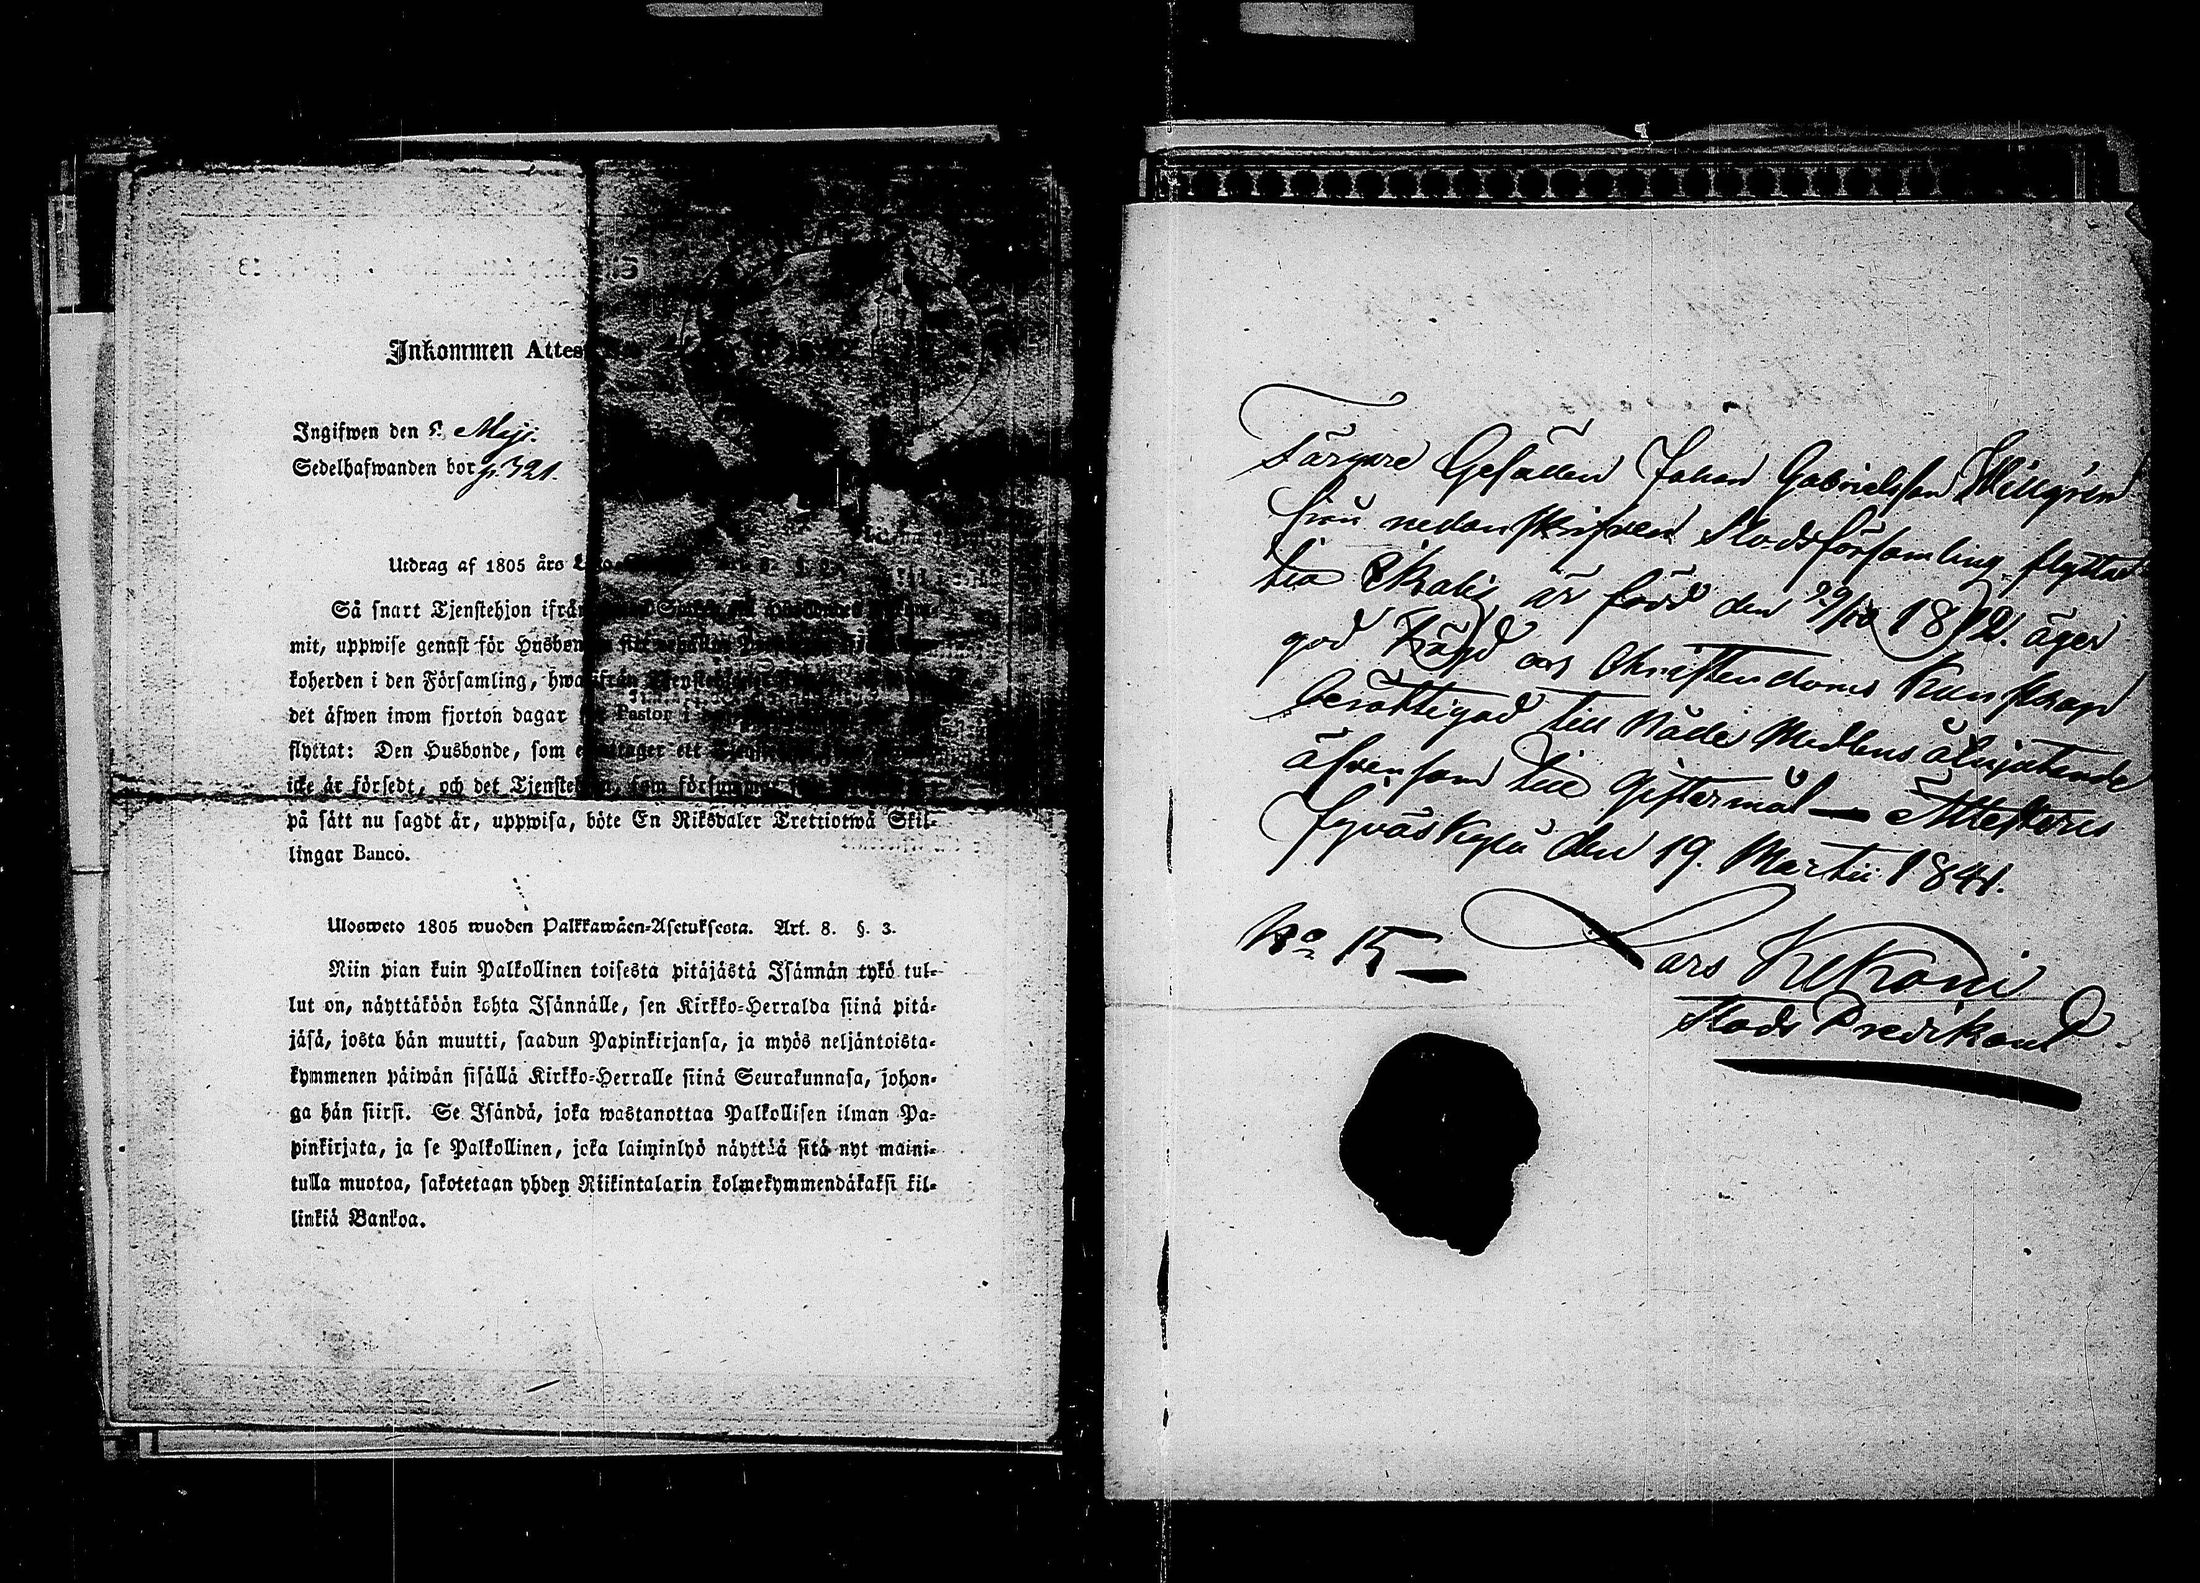 Inkommen Attes
Ingifwen den 8 Maji.
Sedelhafwanden bor p. 321.
Utdrag af 1805 års
Så snart Tjenstehjon ifrån
mit, uppwise genast för Husbon
koherden i den Församling, hwarifrån
det äfwen inom fjorton dagar Pastor i
flyttat: Den Husbonde, som emottager ett
icke är försedt, och det Tjenstehjon, som försummar
på sätt nu sagdt är, uppwisa, böte En Riksdaler Trettiotwå Skil-
lingar Banco.
Ulosweto 1805 wuoden Palkkawäen-Asetuksesta. Art. 8. §. 3.
Niin pian kuin Palkollinen toisesta pitäjästä Isännän tykö tul-
lut on, näyttäköön kohta Isännälle, sen Kirkko-Herralda siinä pitä-
jäsä, josta hän muutti, saadun Papinkirjansa, ja myös neljäntoista-
kymmenen päiwän sisällä Kirkko-Herralle siinä Seurakunnasa, johon-
ga hän siirsi. Se Isändä, joka wastanottaa Palkollisen ilman Pa-
pinkirjata, ja se Palkollinen, joka laiminlyö näyttää sitä nyt maini-
tulla muotoa, sakotetaan yhden Riikintalarin kolmekymmendäkaksi kil-
linkiä Bankoa.
Färgare Gesällen Johan Gabrielsson Willgrén
från nedanskrifven Stadsförsamling flyttar
till är född den 29/10 1812. äger
god Frägd och Christendoms Kunskap
berättigad till Nåde Medlens åtnjutande
äfvensom till Giftermål — Attesteras
Jyväskylä den 19. Martii 1841.
No 15 —
Lars Kekoni
Stads Predikant